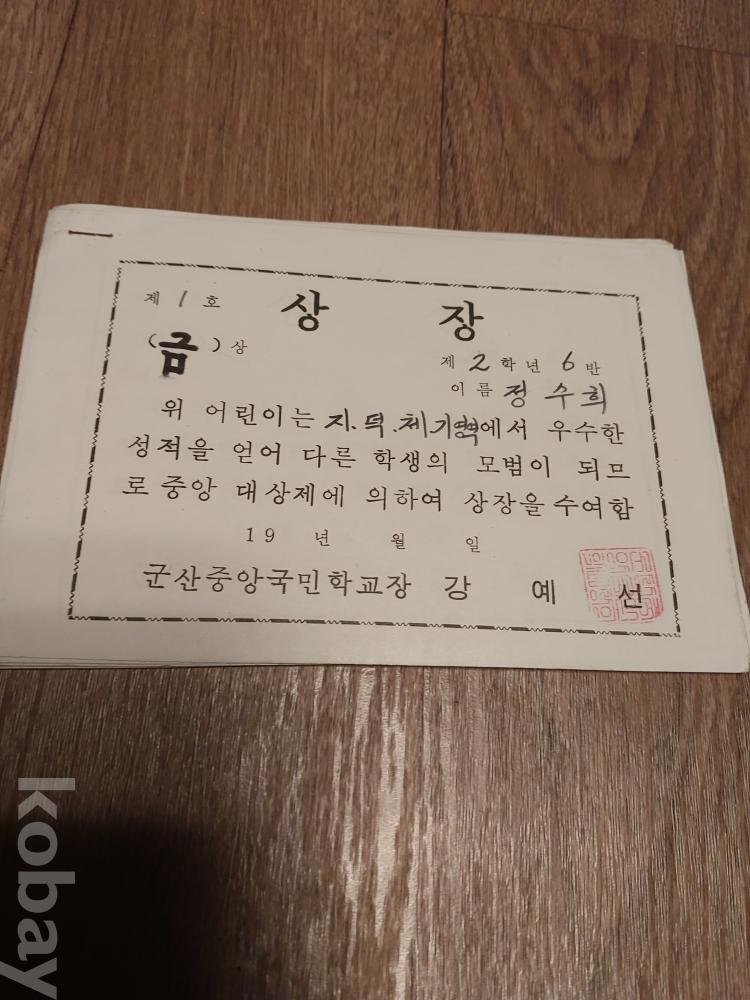 제 1 호 상 장
(금) 상
제 2 학년 6 반
이름 정수희
위 어린이는 지.덕.체기행에서 우수한
성적을 얻어 다른 학생의 모범이 되므
로 중앙 대상제에 의하여 상장을 수여함
19 년 월 일
군산중앙국민학교장 강 예 선
kobay